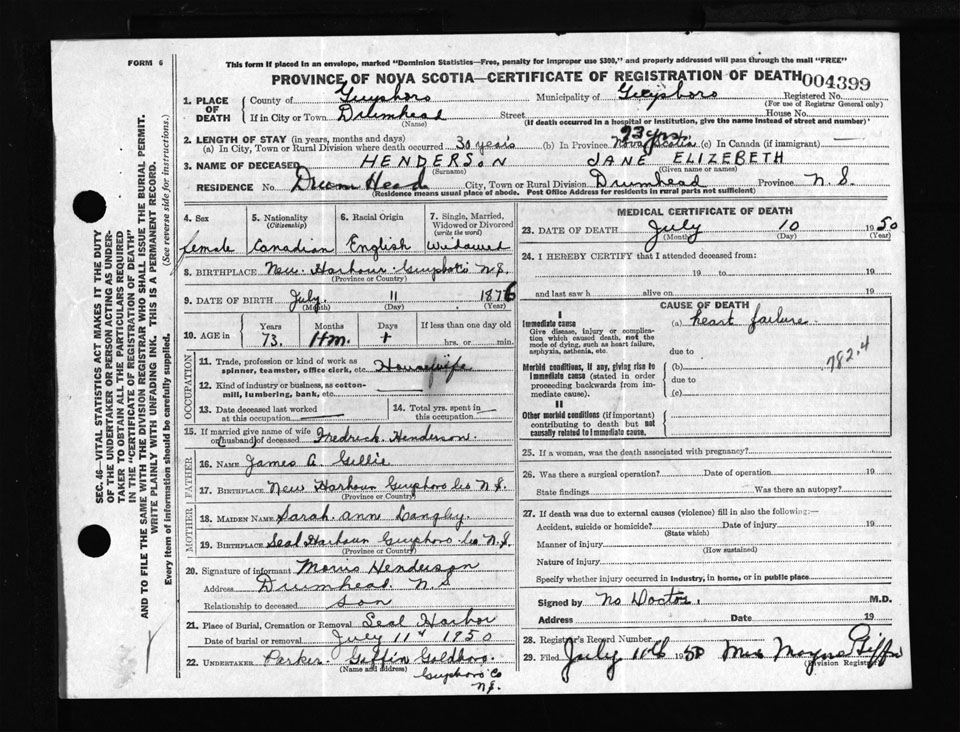 FORM 6
This form if placed in an envelope, marked "Dominion Statistics—Free, penalty for improper use $300," and properly addressed will pass through the mail "FREE"
PROVINCE OF NOVA SCOTIA—CERTIFICATE OF REGISTRATION OF DEATH 004399
1. PLACE OF DEATH
County of Guysboro Municipality of Guysboro Registered No.
(For use of Registrar General only)
If in City or Town Drumhead Street House No.
(Name) (If death occurred in a hospital or institution, give the name instead of street and number)
2. LENGTH OF STAY (in years, months and days) 73 yrs
(a) In City, Town or Rural Division where death occurred 30 years (b) In Province Nova Scotia (c) In Canada (if immigrant)
3. NAME OF DECEASED HENDERSON JANE ELIZEBETH
(Surname) (Given name or names)
RESIDENCE No. Drum Head City, Town or Rural Division Drumhead Province N S.
(Residence means usual place of abode. Post Office Address for residents in rural parts not sufficient)
4. Sex 5. Nationality (Citizenship) 6. Racial Origin 7. Single, Married, Widowed or Divorced (write the word)
female Canadian English Widowed
8. BIRTHPLACE New Harbour N S.
(Province or Country)
9. DATE OF BIRTH July 11 1876
(Month) (Day) (Year)
10. AGE in Years Months Days If less than one day old
73. 11m. hrs. or min.
OCCUPATION
11. Trade, profession or kind of work as spinner, teamster, office clerk, etc. Housewife
12. Kind of industry or business, as cotton-mill, lumbering, bank, etc.
13. Date deceased last worked at this occupation
14. Total yrs. spent in this occupation
15. If married give name of wife or (husband) of deceased Fredrick Henderson.
FATHER
16. NAME James A. Gillie
17. BIRTHPLACE New Harhour Guysboro Co N S.
(Province or Country)
MOTHER
18. MAIDEN NAME Sarah Ann Langley
19. BIRTHPLACE Seal Harbour Guysboro Co N S.
(Province or Country)
20. Signature of informant Morris Henderson
Address Drumhead N S
Relationship to deceased son
21. Place of Burial, Cremation or Removal Seal Harbor
Date of burial or removal July 11 1950
22. UNDERTAKER Parker Giffin Goldboro
(Name and address)
Guysboro Co
N S.
MEDICAL CERTIFICATE OF DEATH
23. DATE OF DEATH July 10 1950
(Month) (Day) (Year)
24. I HEREBY CERTIFY that I attended deceased from:
19 to 19
and last saw h alive on 19
CAUSE OF DEATH
I
Immediate cause (a) heart failure
Give disease, injury or complication which caused death, not the mode of dying, such as heart failure, asphyxia, asthenia, etc.
due to
782.4
Morbid conditions, if any, giving rise to immediate cause (stated in order proceeding backwards from immediate cause).
(b)
due to
(c)
II
Other morbid conditions (if important) contributing to death but not causally related to immediate cause.
25. If a woman, was the death associated with pregnancy?
26. Was there a surgical operation? Date of operation 19
State findings Was there an autopsy?
27. If death was due to external causes (violence) fill in also the following:—
Accident, suicide or homicide? Date of injury 19
(State which)
Manner of injury
(How sustained)
Nature of injury
Specify whether injury occurred in industry, in home, or in public place
Signed by No Doctor. M.D.
Address Date 19
28. Registrar's Record Number
29. Filed July 11th 1950 Mrs Giffin
(Division Registrar)
SEC. 46—VITAL STATISTICS ACT MAKES IT THE DUTY
OF THE UNDERTAKER OR PERSON ACTING AS UNDER-
TAKER TO OBTAIN ALL THE PARTICULARS REQUIRED
IN THE "CERTIFICATE OF REGISTRATION OF DEATH"
AND TO FILE THE SAME WITH THE DIVISION REGISTRAR WHO SHALL ISSUE THE BURIAL PERMIT.
WRITE PLAINLY WITH UNFADING INK. THIS IS A PERMANENT RECORD.
Every item of information should be carefully supplied. (See reverse side for instructions.)